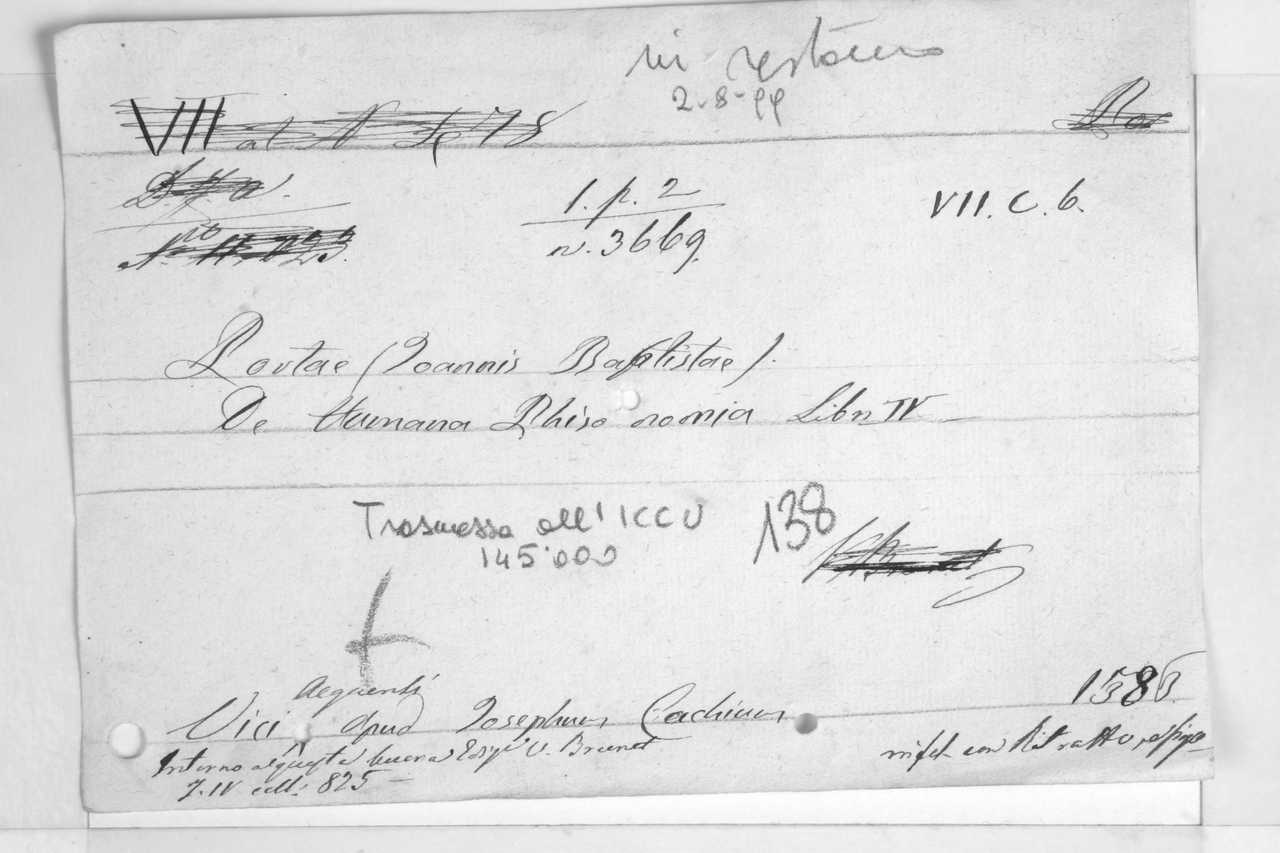 in restauro
2-8-99
VII
1. p. 2
n. 3669.
VII. C. 6.
Portae (Joannis Baptistae).
De Humana Phisonomia Libri IV
Trasmessa all'ICCU
145.000
138
Aequensi
Vici apud Josephum Cachium
1586.
Intorno a questa buona Ediz.e V. Brunet
T. IV coll. 825
in fol. con Ritratto, e fig.